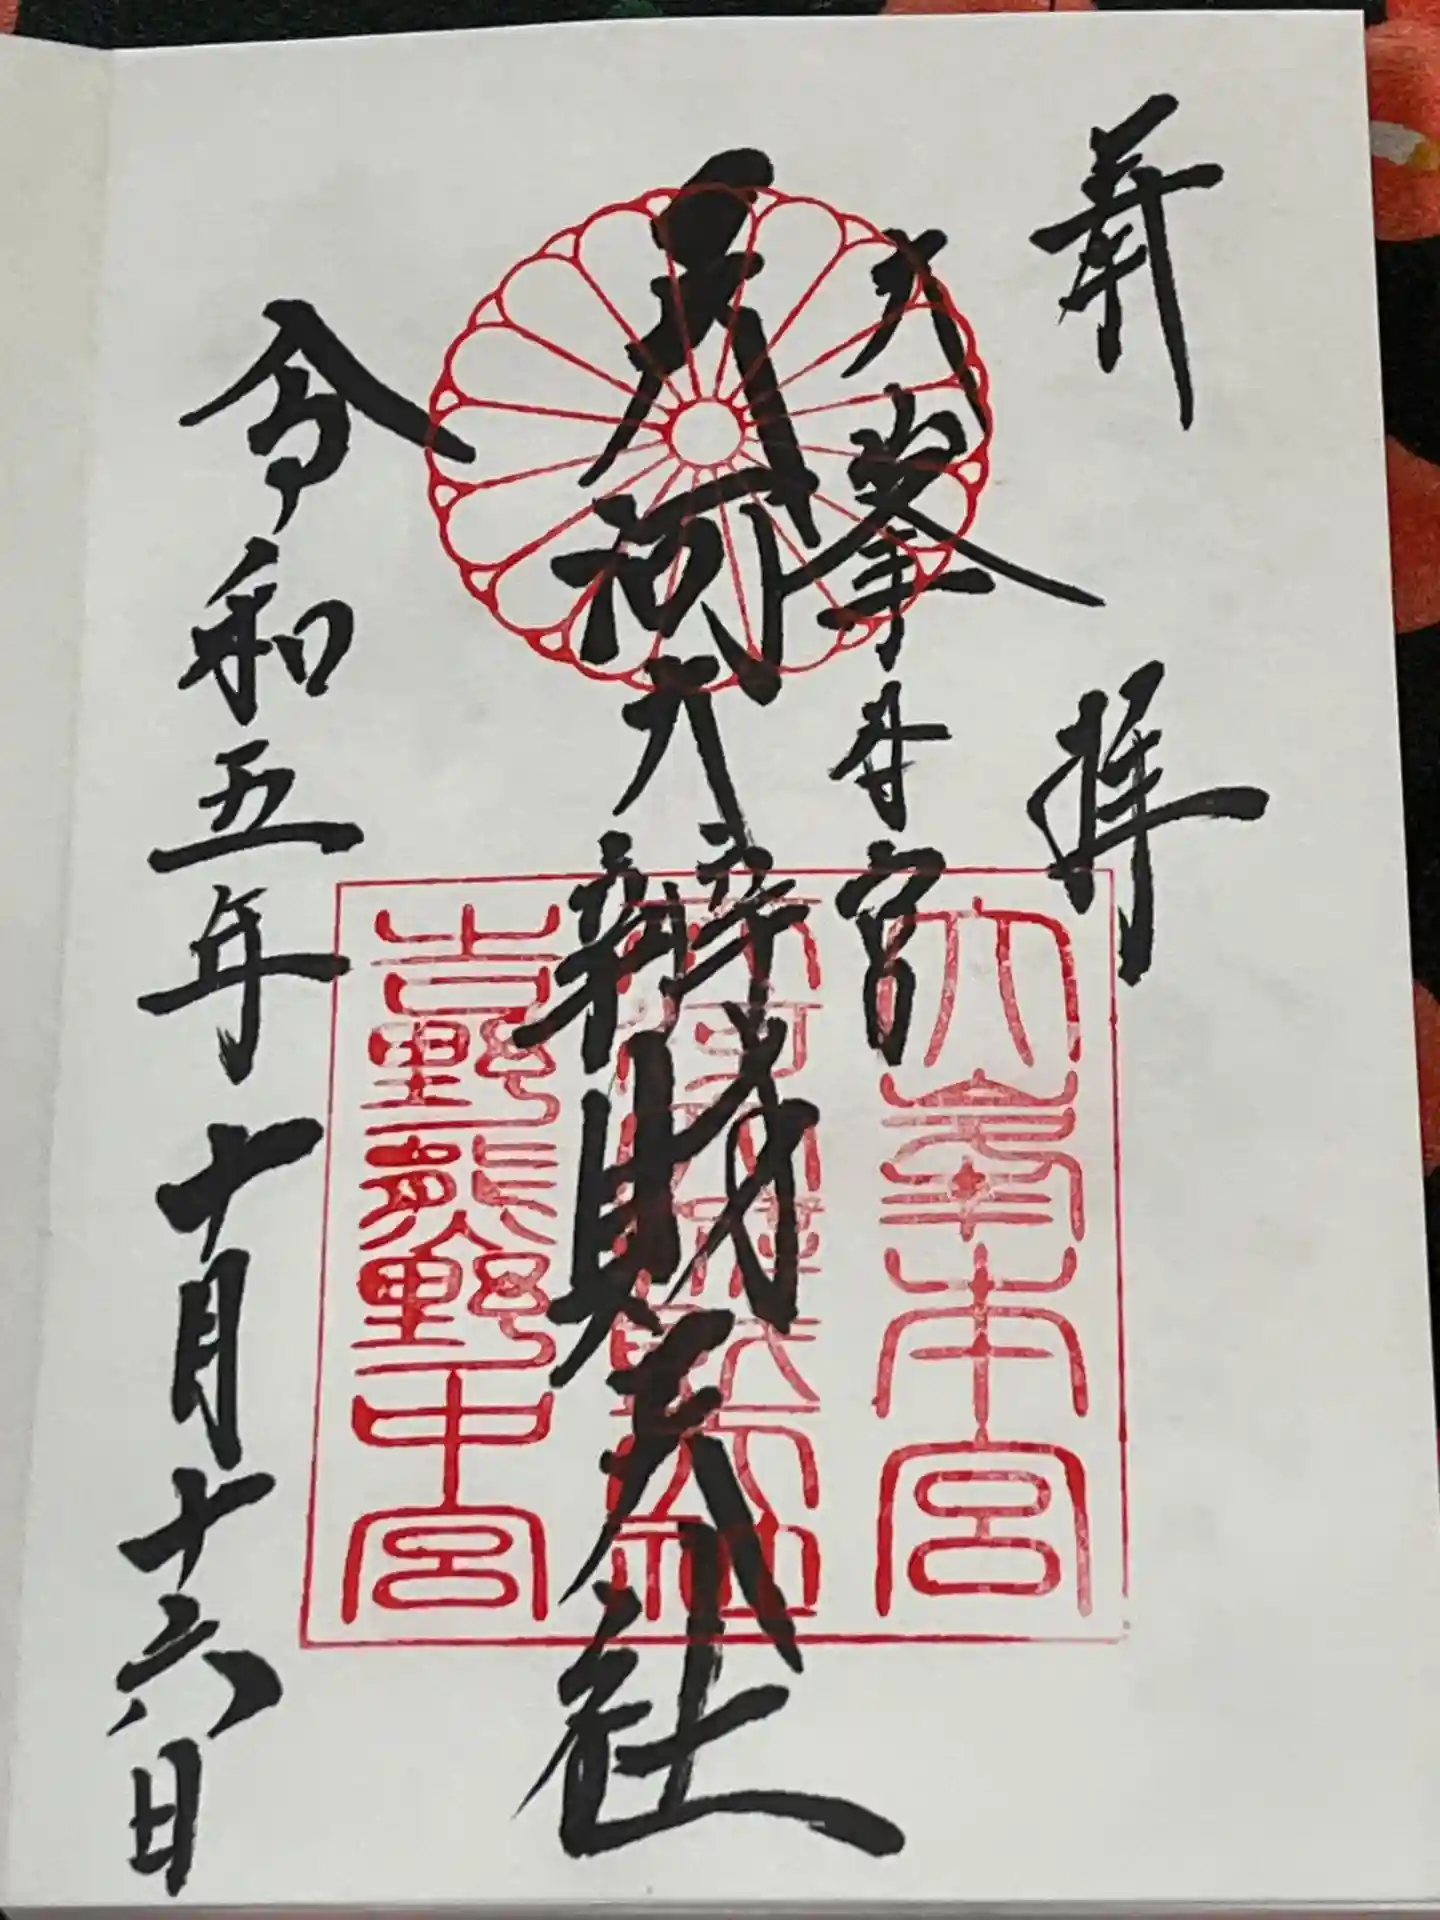 奉拝
大峯本宮
天河大辨財天社
令和五年十月十六日
大峯本宮
天河大辨財天社
吉野熊野中宮